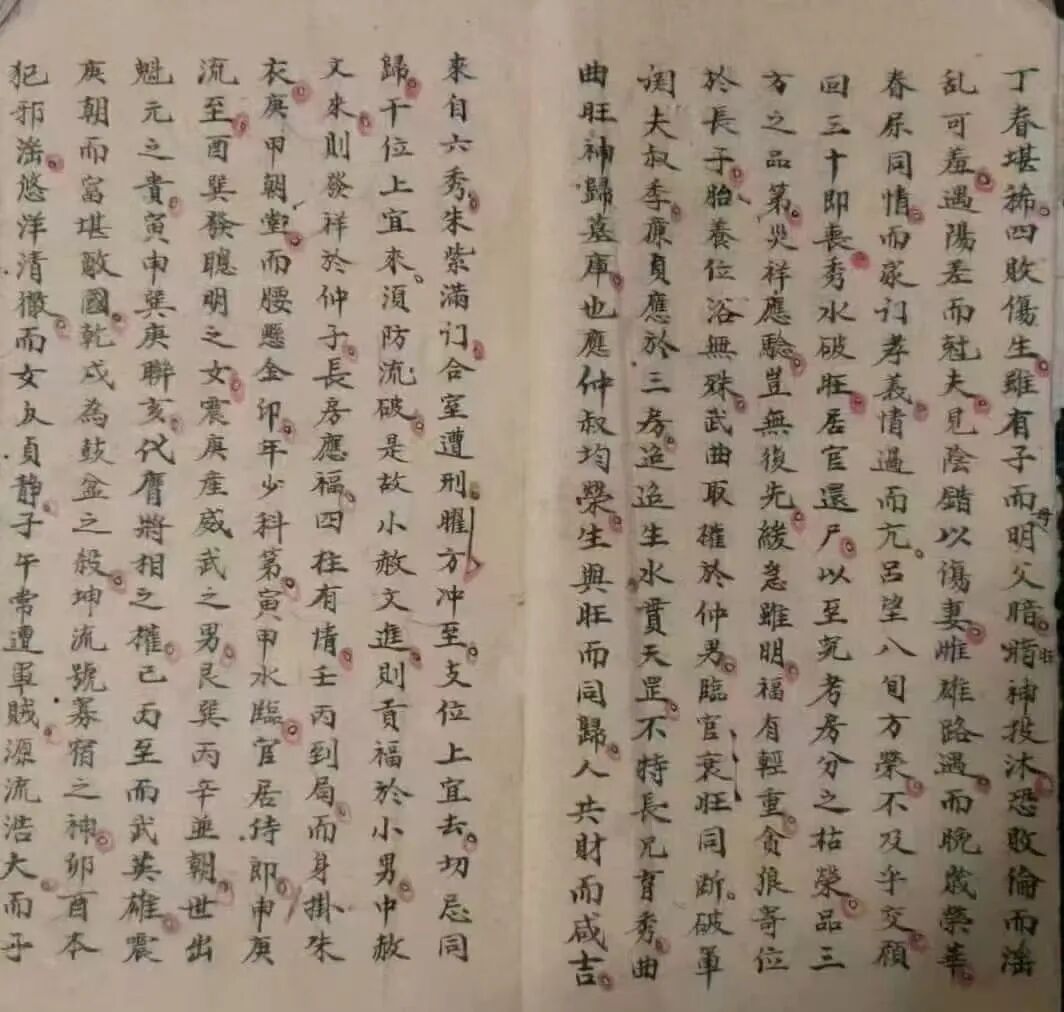 丁春堪稀四敗傷生雖有子而明父暗暗神投沐恐敗倫而滛
乱可羞遇陽差而尅夫見陰錯以傷妻雌雄路遇而晚歲榮華
春尿同情而家订孝義情過而亢呂望八旬方榮不及乎交顔
回三十即丧秀水破旺居官還尸以至究考房分之枯榮品三
方之品第災祥應驗豈無復先緩急雖明福有輕重貪狼寄位
於長子胎養位浴無殊武曲取權於仲男臨官衰旺同断破軍
関夫叔季亷貞應於三房迨迨生水貫天罡不特長兄育秀曲
曲旺神歸墓庫也應仲叔均榮生與旺而同歸人共財而咸吉
來自六秀朱紫滿订合室遭刑曜方冲至支位上宜去切忌同
歸干位上宜來須防流破是故小赦文進則貢福於小男中赦
文來則發祥於仲子長房應福四柱有情壬丙到局而身掛朱
衣庚甲朝堂而腰懸金印年少科第寅甲水臨官居侍郎申庚
流至酉巽發聰明之女震庚産威武之男艮巽丙辛並朝世出
魁元之貴寅申巽庚聯亥代膺將相之權己丙至而武英雄震
庚朝而富堪敵國乾戌為鼓盆之殺坤流號寡宿之神卯酉本
犯邪滛悠洋清徹而女反貞静子午常遭軍賊源流浩大而子